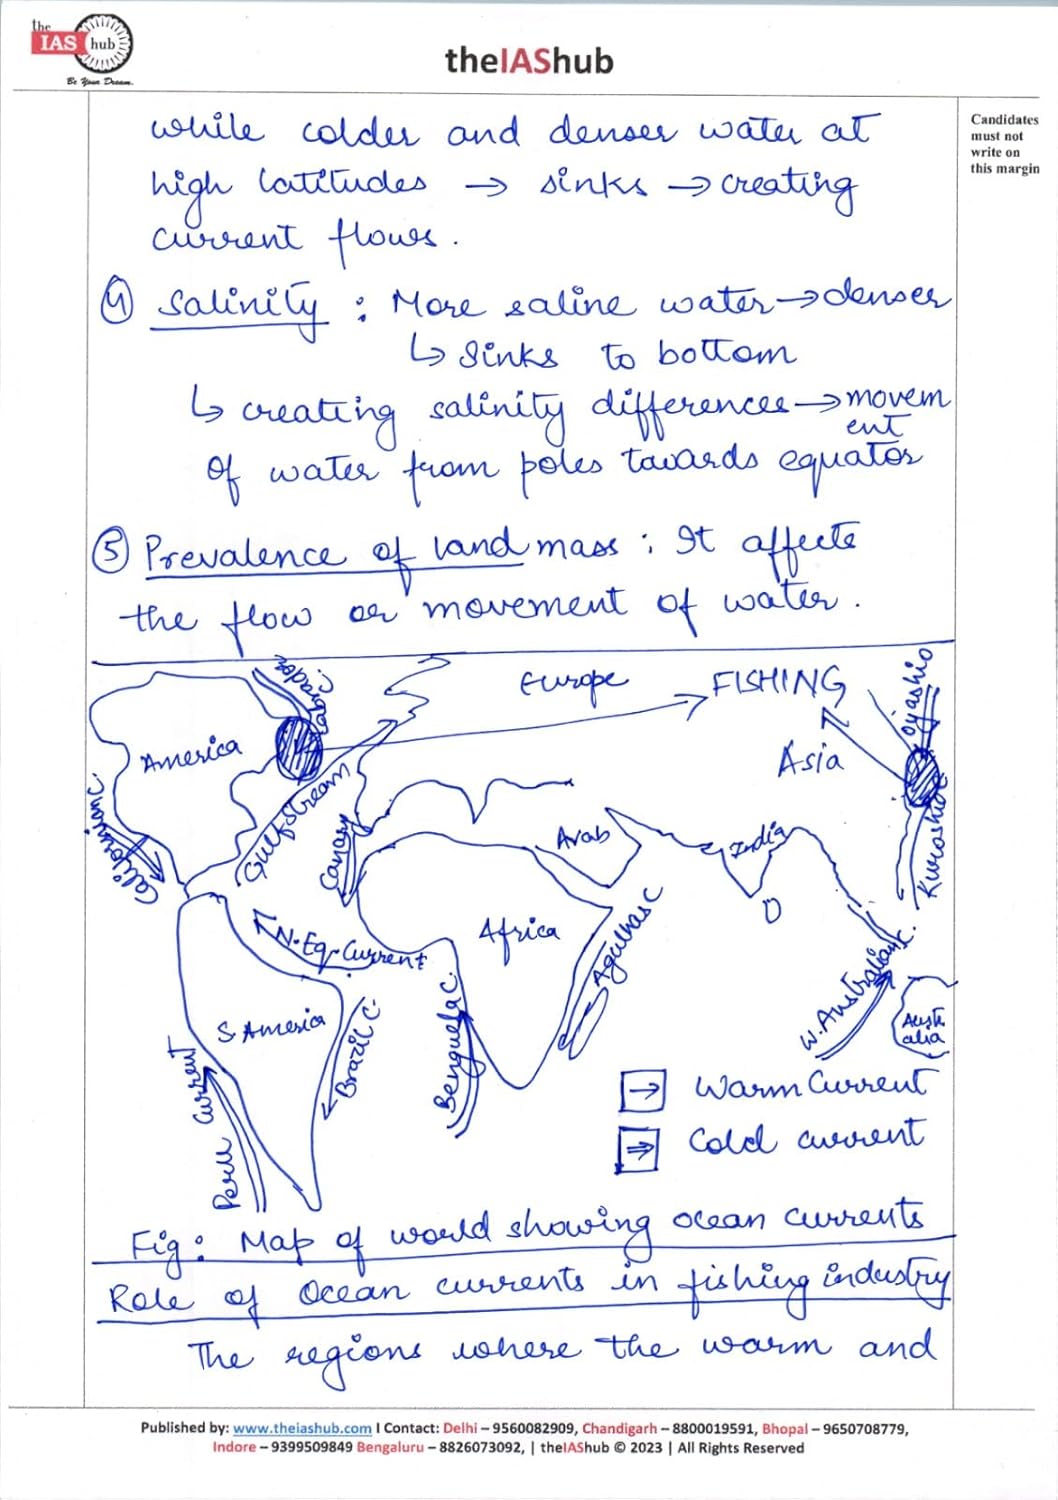 the
IAS hub
Be Your Dream.
theIAShub
Candidates
must not
write on
this margin
while colder and denser water at
high latitudes → sinks → creating
current flows.
④ Salinity : More saline water → denser
↳ Sinks to bottom
↳ creating salinity differences → movem
ent
of water from poles towards equator
⑤ Prevalence of landmass : It affects
the flow or movement of water.
Labrador C.
Europe
FISHING
Oyashio
America
Asia
Californian C.
Gulfstream
Canary
Arab
India
Kuroshio C
N. Eq. Current
Africa
Agulhas C
W. Australian C.
S. America
Brazil C.
Benguela C.
Austr
alia
Peru Current
→ Warm Current
⇒ Cold current
Fig : Map of world showing ocean currents
Role of Ocean currents in fishing industry
The regions where the warm and
Published by: www.theiashub.com I Contact: Delhi – 9560082909, Chandigarh – 8800019591, Bhopal – 9650708779,
Indore – 9399509849 Bengaluru – 8826073092, | theIAShub © 2023 | All Rights Reserved